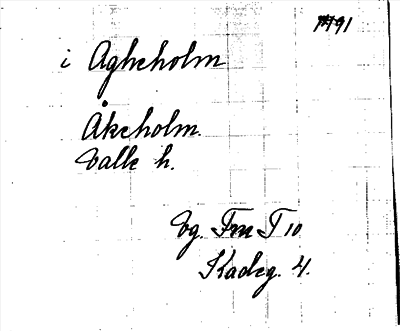 1791
i Agheholm
Åkeholm.
Valle h.
Vg. Fru T 10
Kadeg. 4.